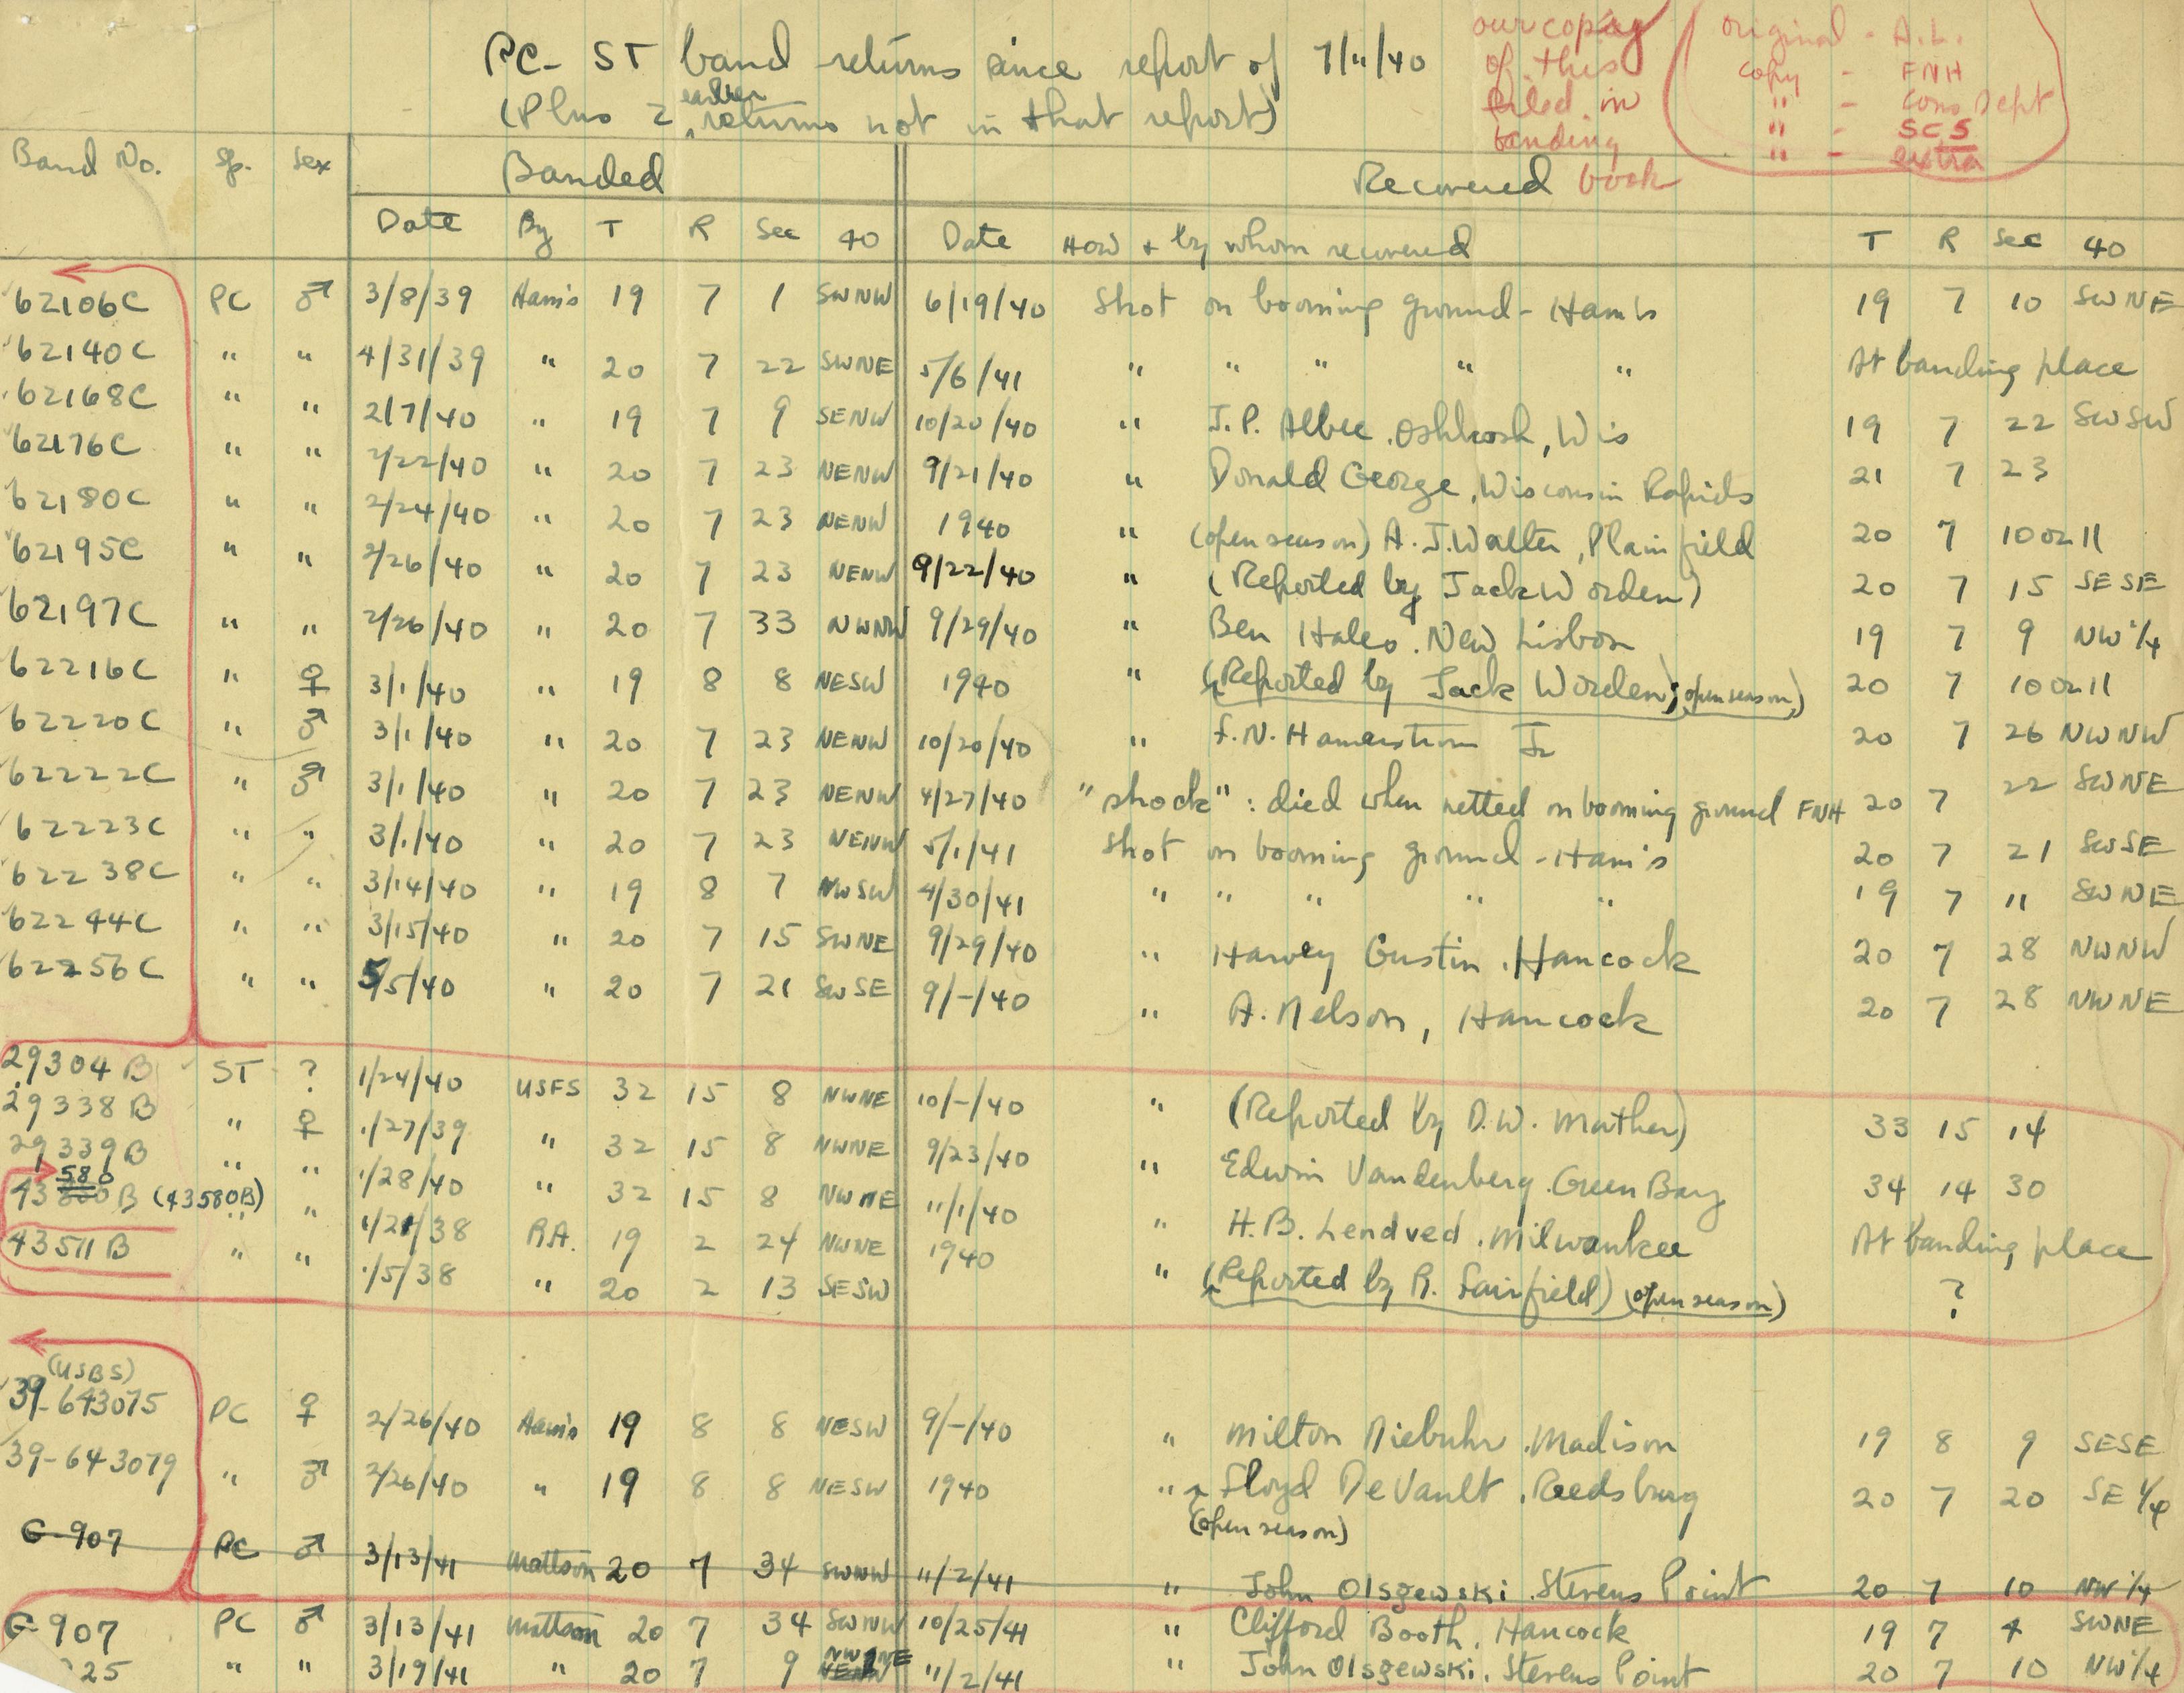 PC- ST band returns since report of 7/11/40
(Plus 2 earlier returns not in that report)
our copy of this filed in banding book
original - A.L.
copy - FNH
" - Cons Dept
" - SCS
" - extra
Band No. Sp. Sex Banded Recovered
Date By T R Sec 40 Date How + by whom recovered T R Sec 40
62106C PC ♂ 3/8/39 Ham's 19 7 1 SWNW 6/19/40 Shot on booming ground - Ham's 19 7 10 SWNE
62140C " " 4/31/39 " 20 7 22 SWNE 5/6/41 " " " " " At banding place
62168C " " 2/7/40 " 19 7 9 SENW 10/20/40 " J.P. Albee, Oshkosh, Wis 19 7 22 SWSW
62176C " " 2/22/40 " 20 7 23 NENW 9/21/40 " Donald George, Wisconsin Rapids 21 7 23
62180C " " 2/24/40 " 20 7 23 NENW 1940 " (open season) A.J. Walter, Plainfield 20 7 10 or 11
62195C " " 2/26/40 " 20 7 23 NENW 9/22/40 " (Reported by Jack Worden) 20 7 15 SESE
62197C " " 2/26/40 " 20 7 33 NWNW 9/29/40 " Ben Hales, New Lisbon 19 7 9 NW 1/4
62216C " ♀ 3/1/40 " 19 8 8 NESW 1940 " (Reported by Jack Worden; (open season)) 20 7 10 or 11
62220C " ♂ 3/1/40 " 20 7 23 NENW 10/20/40 " F.N. Hamerstrom Jr 20 7 26 NWNW
62222C " ♂ 3/1/40 " 20 7 23 NENW 4/27/40 "shock": died when netted on booming ground FNH 20 7 22 SWNE
62223C " " 3/1/40 " 20 7 23 NENW 5/1/41 Shot on booming ground - Ham's 20 7 21 SWSE
62238C " " 3/14/40 " 19 8 7 NWSW 4/30/41 " " " " " 19 7 11 SWNE
62244C " " 3/15/40 " 20 7 15 SWNE 9/29/40 " Harvey Gustin, Hancock 20 7 28 NWNW
62256C " " 5/5/40 " 20 7 21 SWSE 9/-/40 " A. Nelson, Hancock 20 7 28 NWNE
29304B ST ? 1/24/40 USFS 32 15 8 NWNE 10/-/40 " (Reported by D.W. Mather) 33 15 14
29338B " ♀ 1/27/39 " 32 15 8 NWNE 9/23/40 " Edwin Vandenberg, Green Bay 34 14 30
29339B " " 1/28/40 " 32 15 8 NWNE 11/1/40 " H.B. Lendved, Milwaukee At banding place
580
43800B (43580B) " " 1/21/38 R.A. 19 2 24 NWNE 1940 " (Reported by R. Fairfield) (open season) ?
43511B " " 1/5/38 " 20 2 13 SESW
(USBS)
39-643075 PC ♀ 2/26/40 Ham's 19 8 8 NESW 9/-/40 " Milton Niebuhr, Madison 19 8 9 SESE
39-643079 " ♂ 2/26/40 " 19 8 8 NESW 1940 " Floyd DeVault, Reedsburg 20 7 20 SE 1/4
(open season)
G-907 PC ♂ 3/13/41 Mattson 20 7 34 SWNW 11/2/41 " John Olszewski, Stevens Point 20 7 10 NW 1/4
G-907 PC ♂ 3/13/41 Mattson 20 7 34 SWNW 10/25/41 " Clifford Booth, Hancock 19 7 4 SWNE
25 " " 3/19/41 " 20 7 9 NWNE 11/2/41 " John Olszewski, Stevens Point 20 7 10 NW 1/4